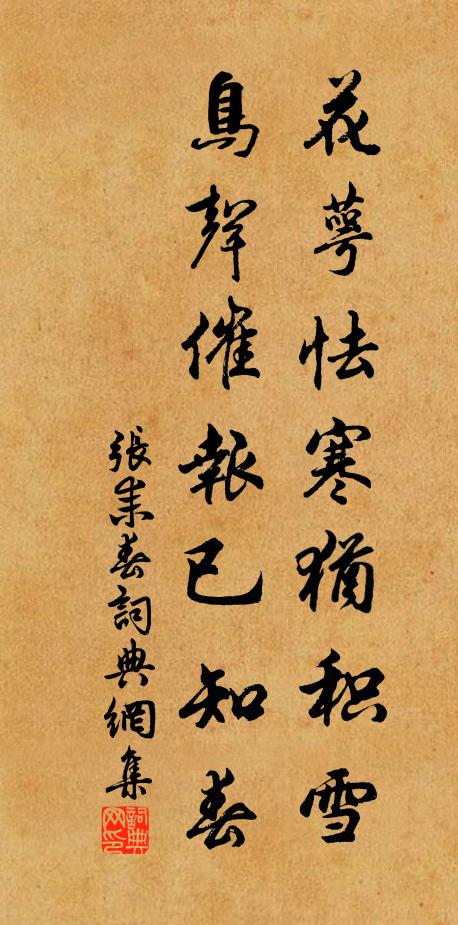 花萼怯寒猶积雪
鳥聲催報已知春
張耒春詞典網集
詞典网印